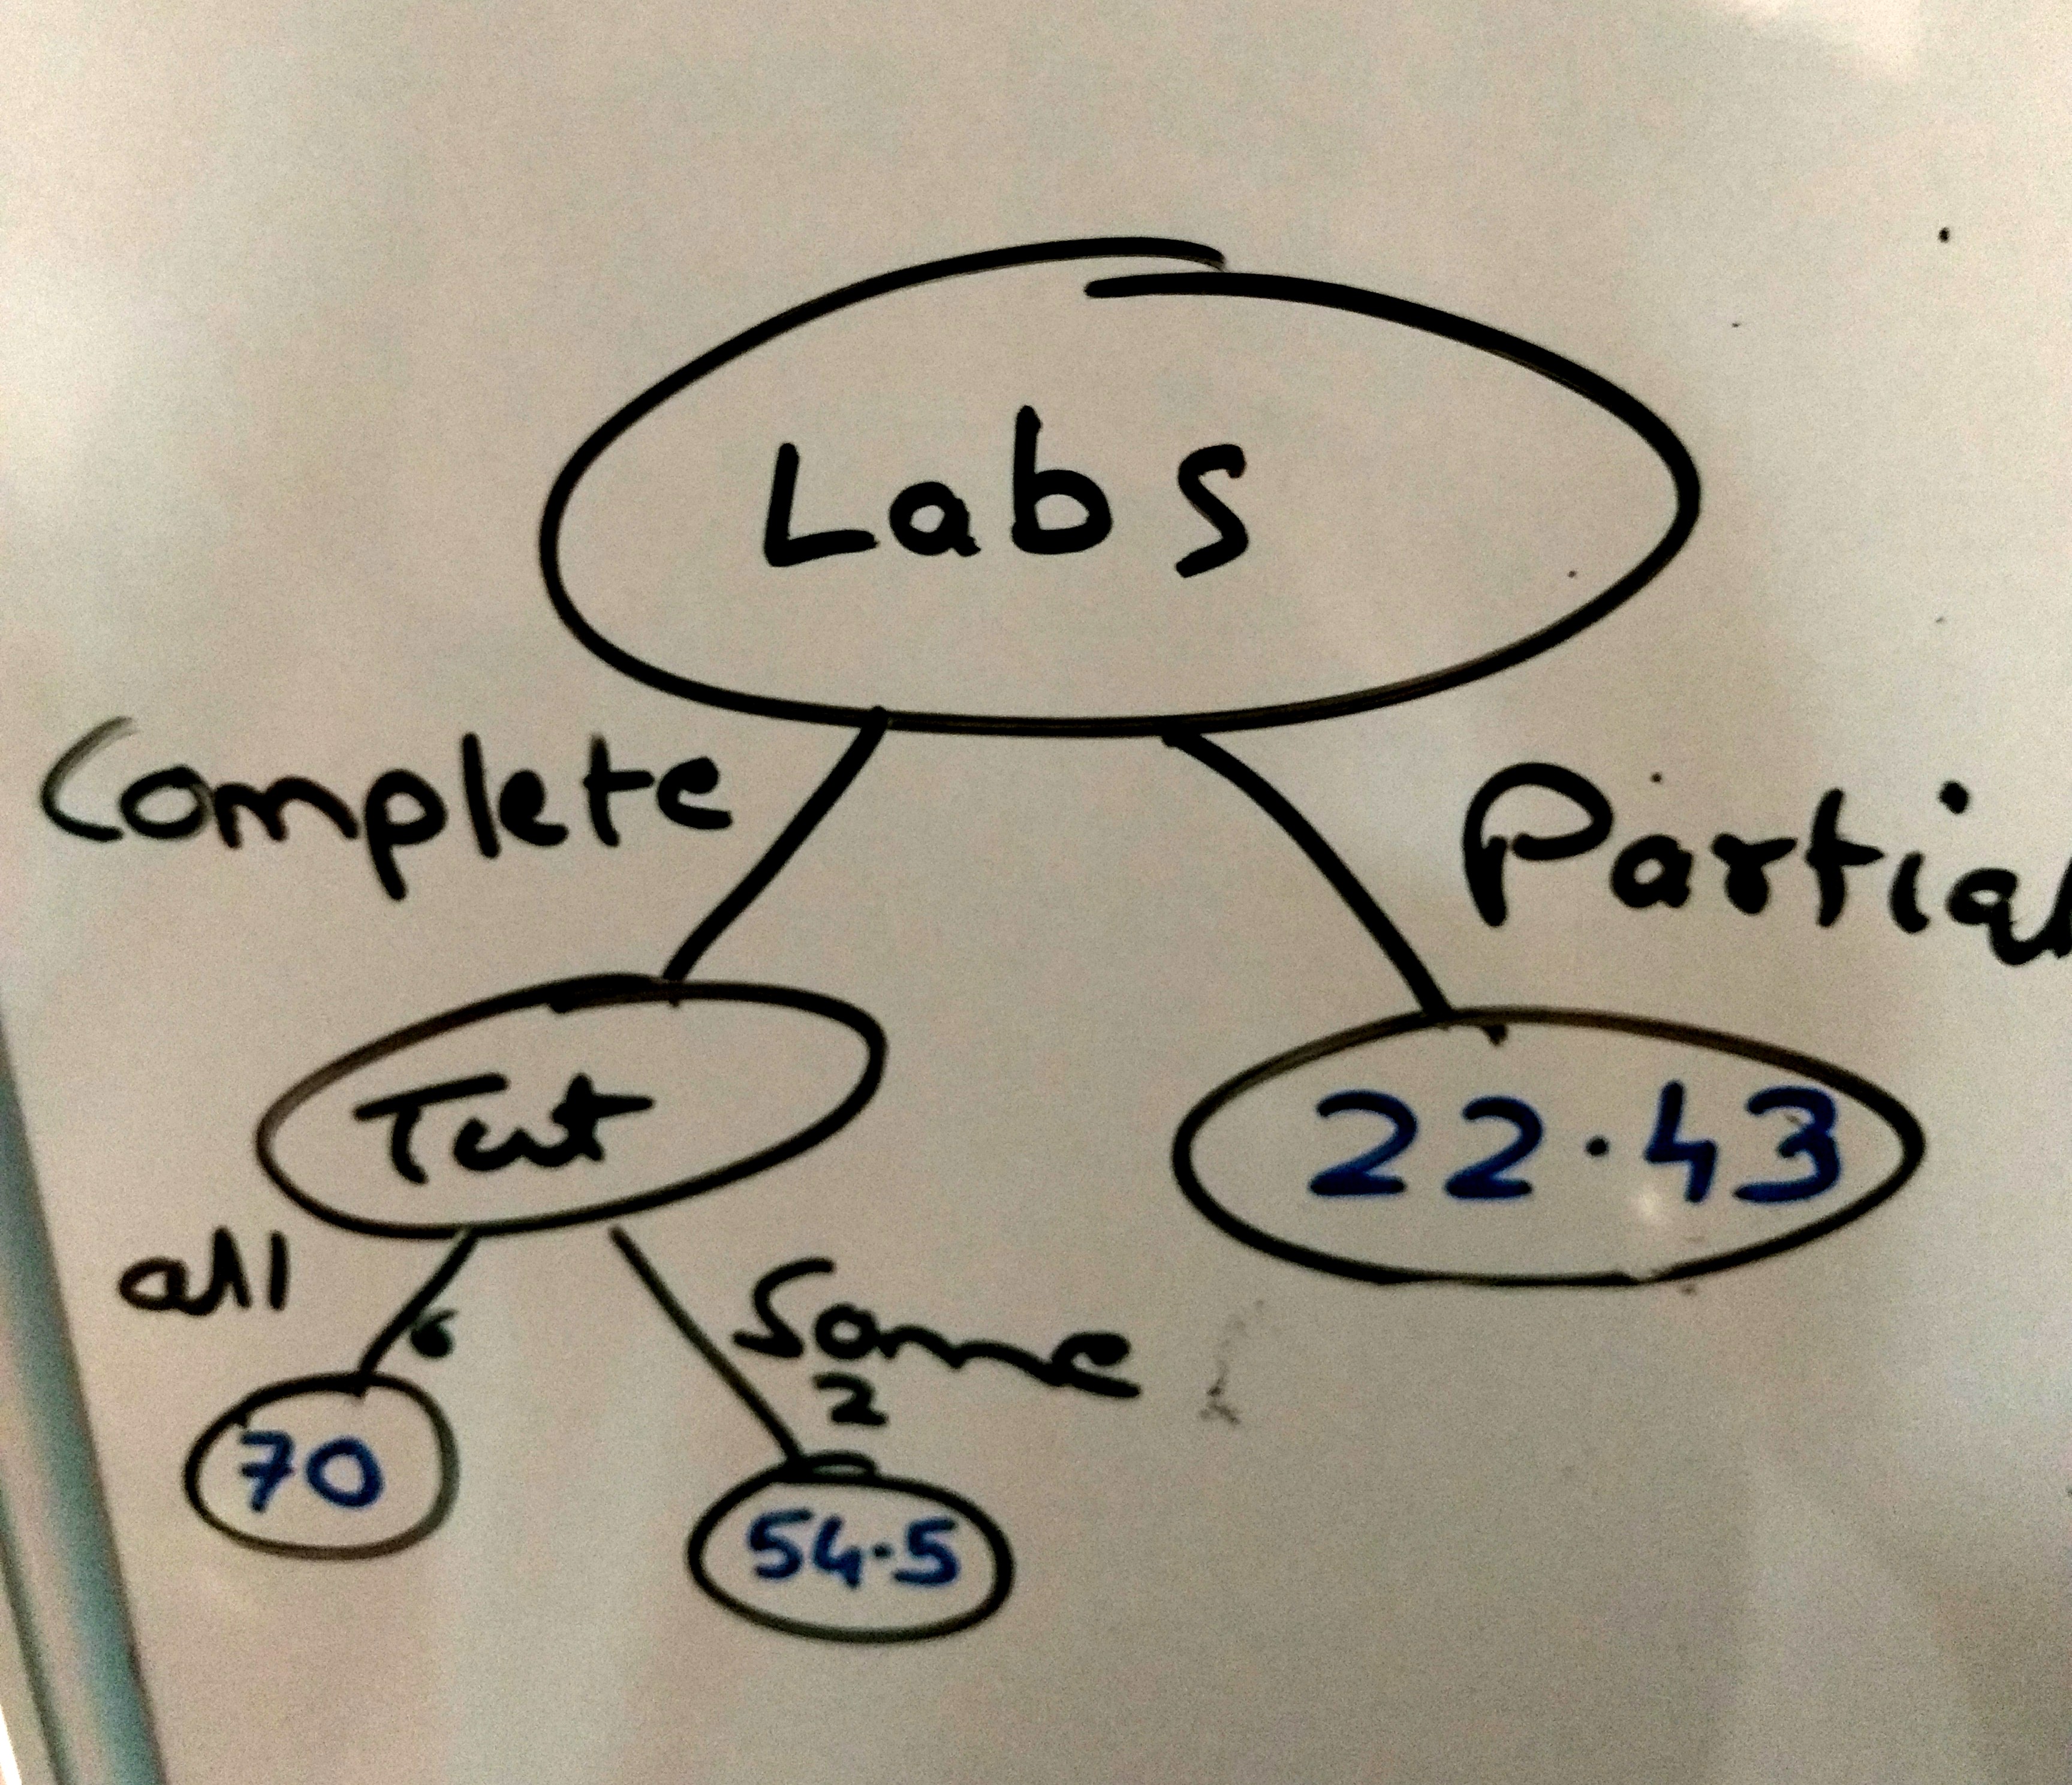 Labs
Complete
Partial
Tut
22.43
all
6
Some
2
70
54.5